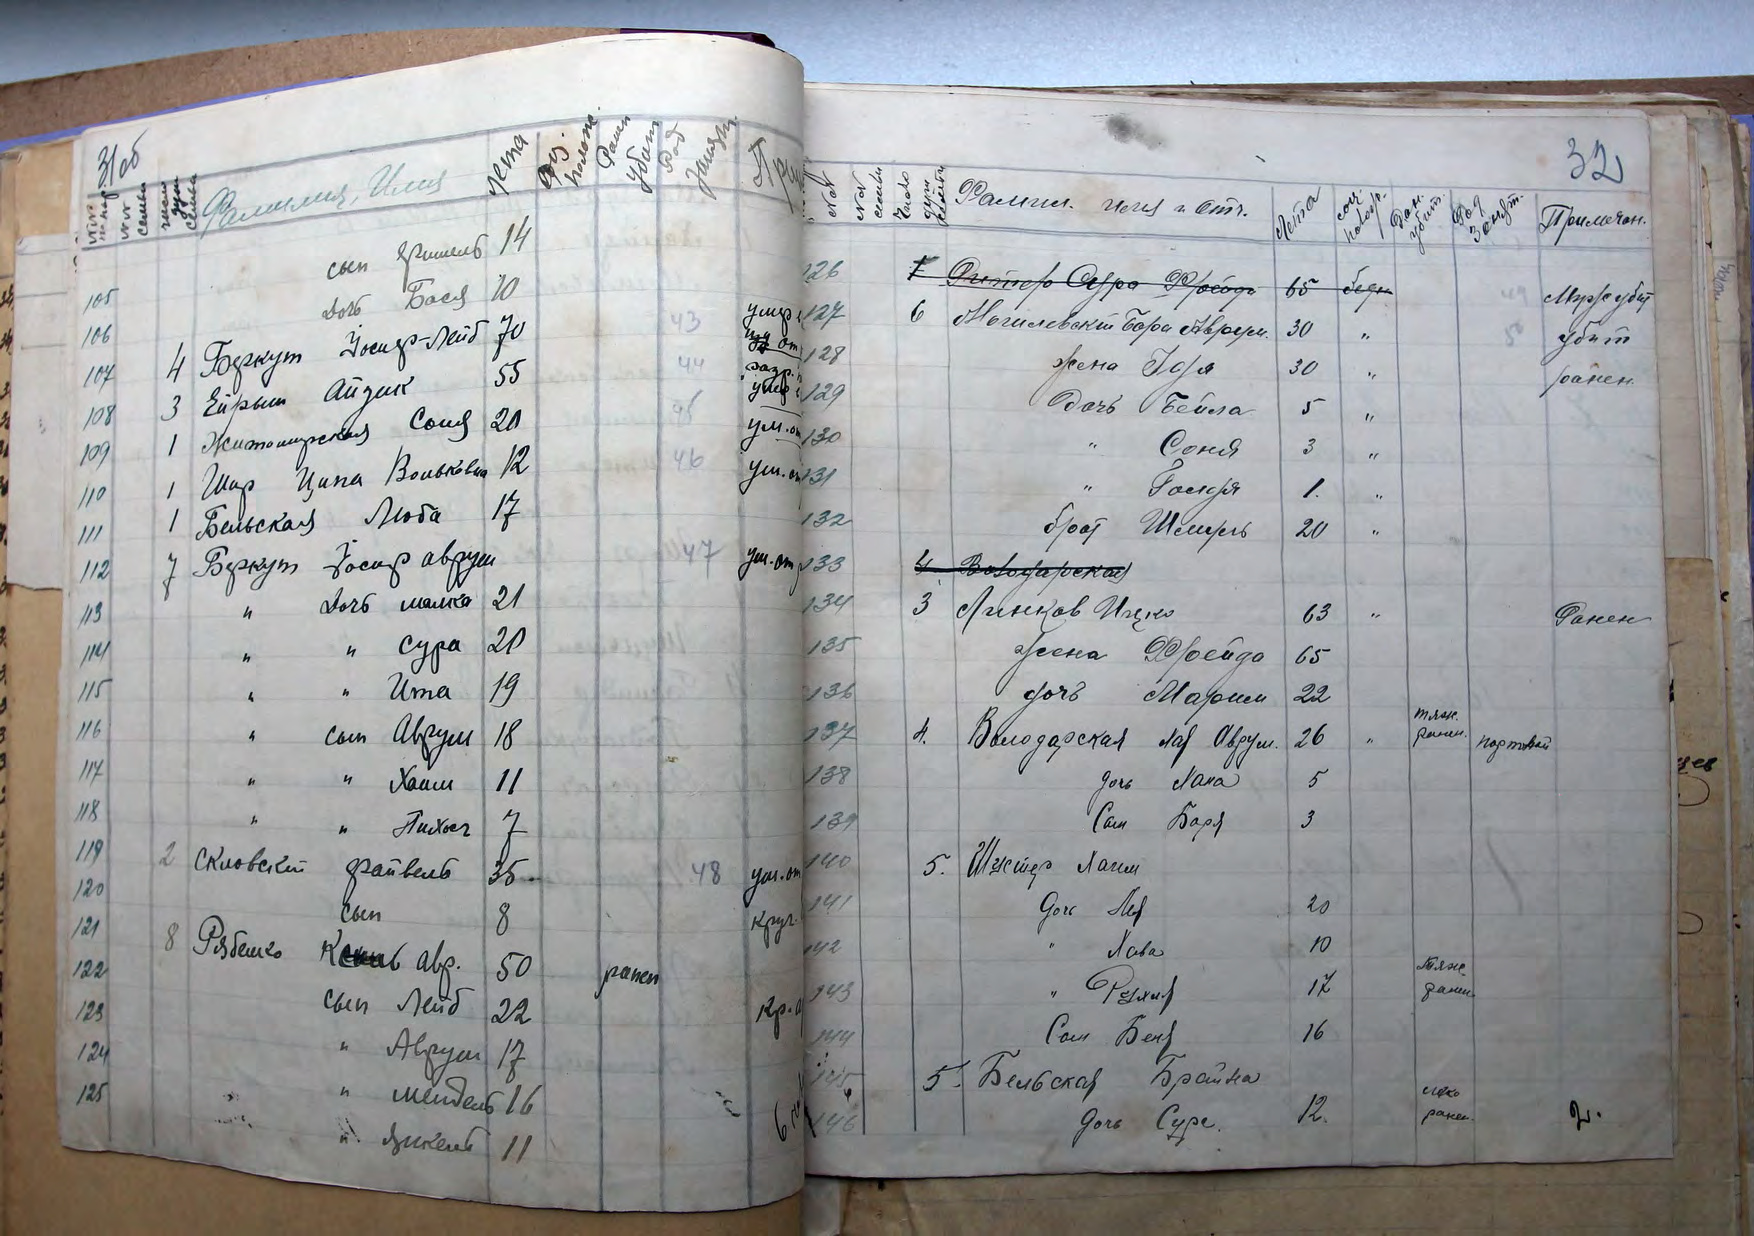 31об
№№ п/пор №№ семьи число душ семьи Фамилия, Имя Лета Физ. полож. Ранен Убит Род занят. При
сын Яникель 14
105 Дочь Бася 10
106 4 Беркут Иосиф-Лейб 70 43 умер
107 3 Ейрыш Айзик 55 44
108 1 Житомирская Соня 20 45 ум. от
109 1 Шир Ципа Вольковна 12 46 ум. от
110 1 Бельская Люба 17
111 7 Беркут Иосиф Аврум 47 ум. от
112 " Дочь Малка 21
113 " " Сура 20
114 " " Ита 19
115 " сын Аврум 18
116 " " Хаим 11
117 " " 7
118 2 Скловский Файвель 35 48 ум. от
119 сын 8 кругл.
120 8 Рябенко авр. 50 ранен
121 сын Лейб 22 кр.
122 " Аврум 17
123 " Мендель 16
124 " Янкель 11
125
32
№№ №№ семьи Число душ семьи Фамил. имя и отч. Лета соц. полож. Ран. убит. Род занят. Примечан.
126 1 Сура Фрейда 65 бедн Муж убит
127 6 Могилевский Борух Аврум. 30 " убит
128 жена Идя 30 " ранен.
129 Дочь Бейла 5 "
130 " Соня 3 "
131 " 1. "
132 брат 20 "
133 4 Володарская
134 3 Линков Ицко 63 " Ранен
135 жена Фрейда 65
136 дочь Марим 22
137 4. Володарская Лая Аврум. 26 " тяж. ранен. портной
138 дочь Хана 5
139 Сын Боря 3
140 5. Шустер Хаим
141 дочь Лея 20
142 " Хава 10
143 " Рухля 17 тяж. ранен
144 Сын Беня 16
145 5. Бельская Брайна
146 дочь Сура. 12. легко ранен. 2.